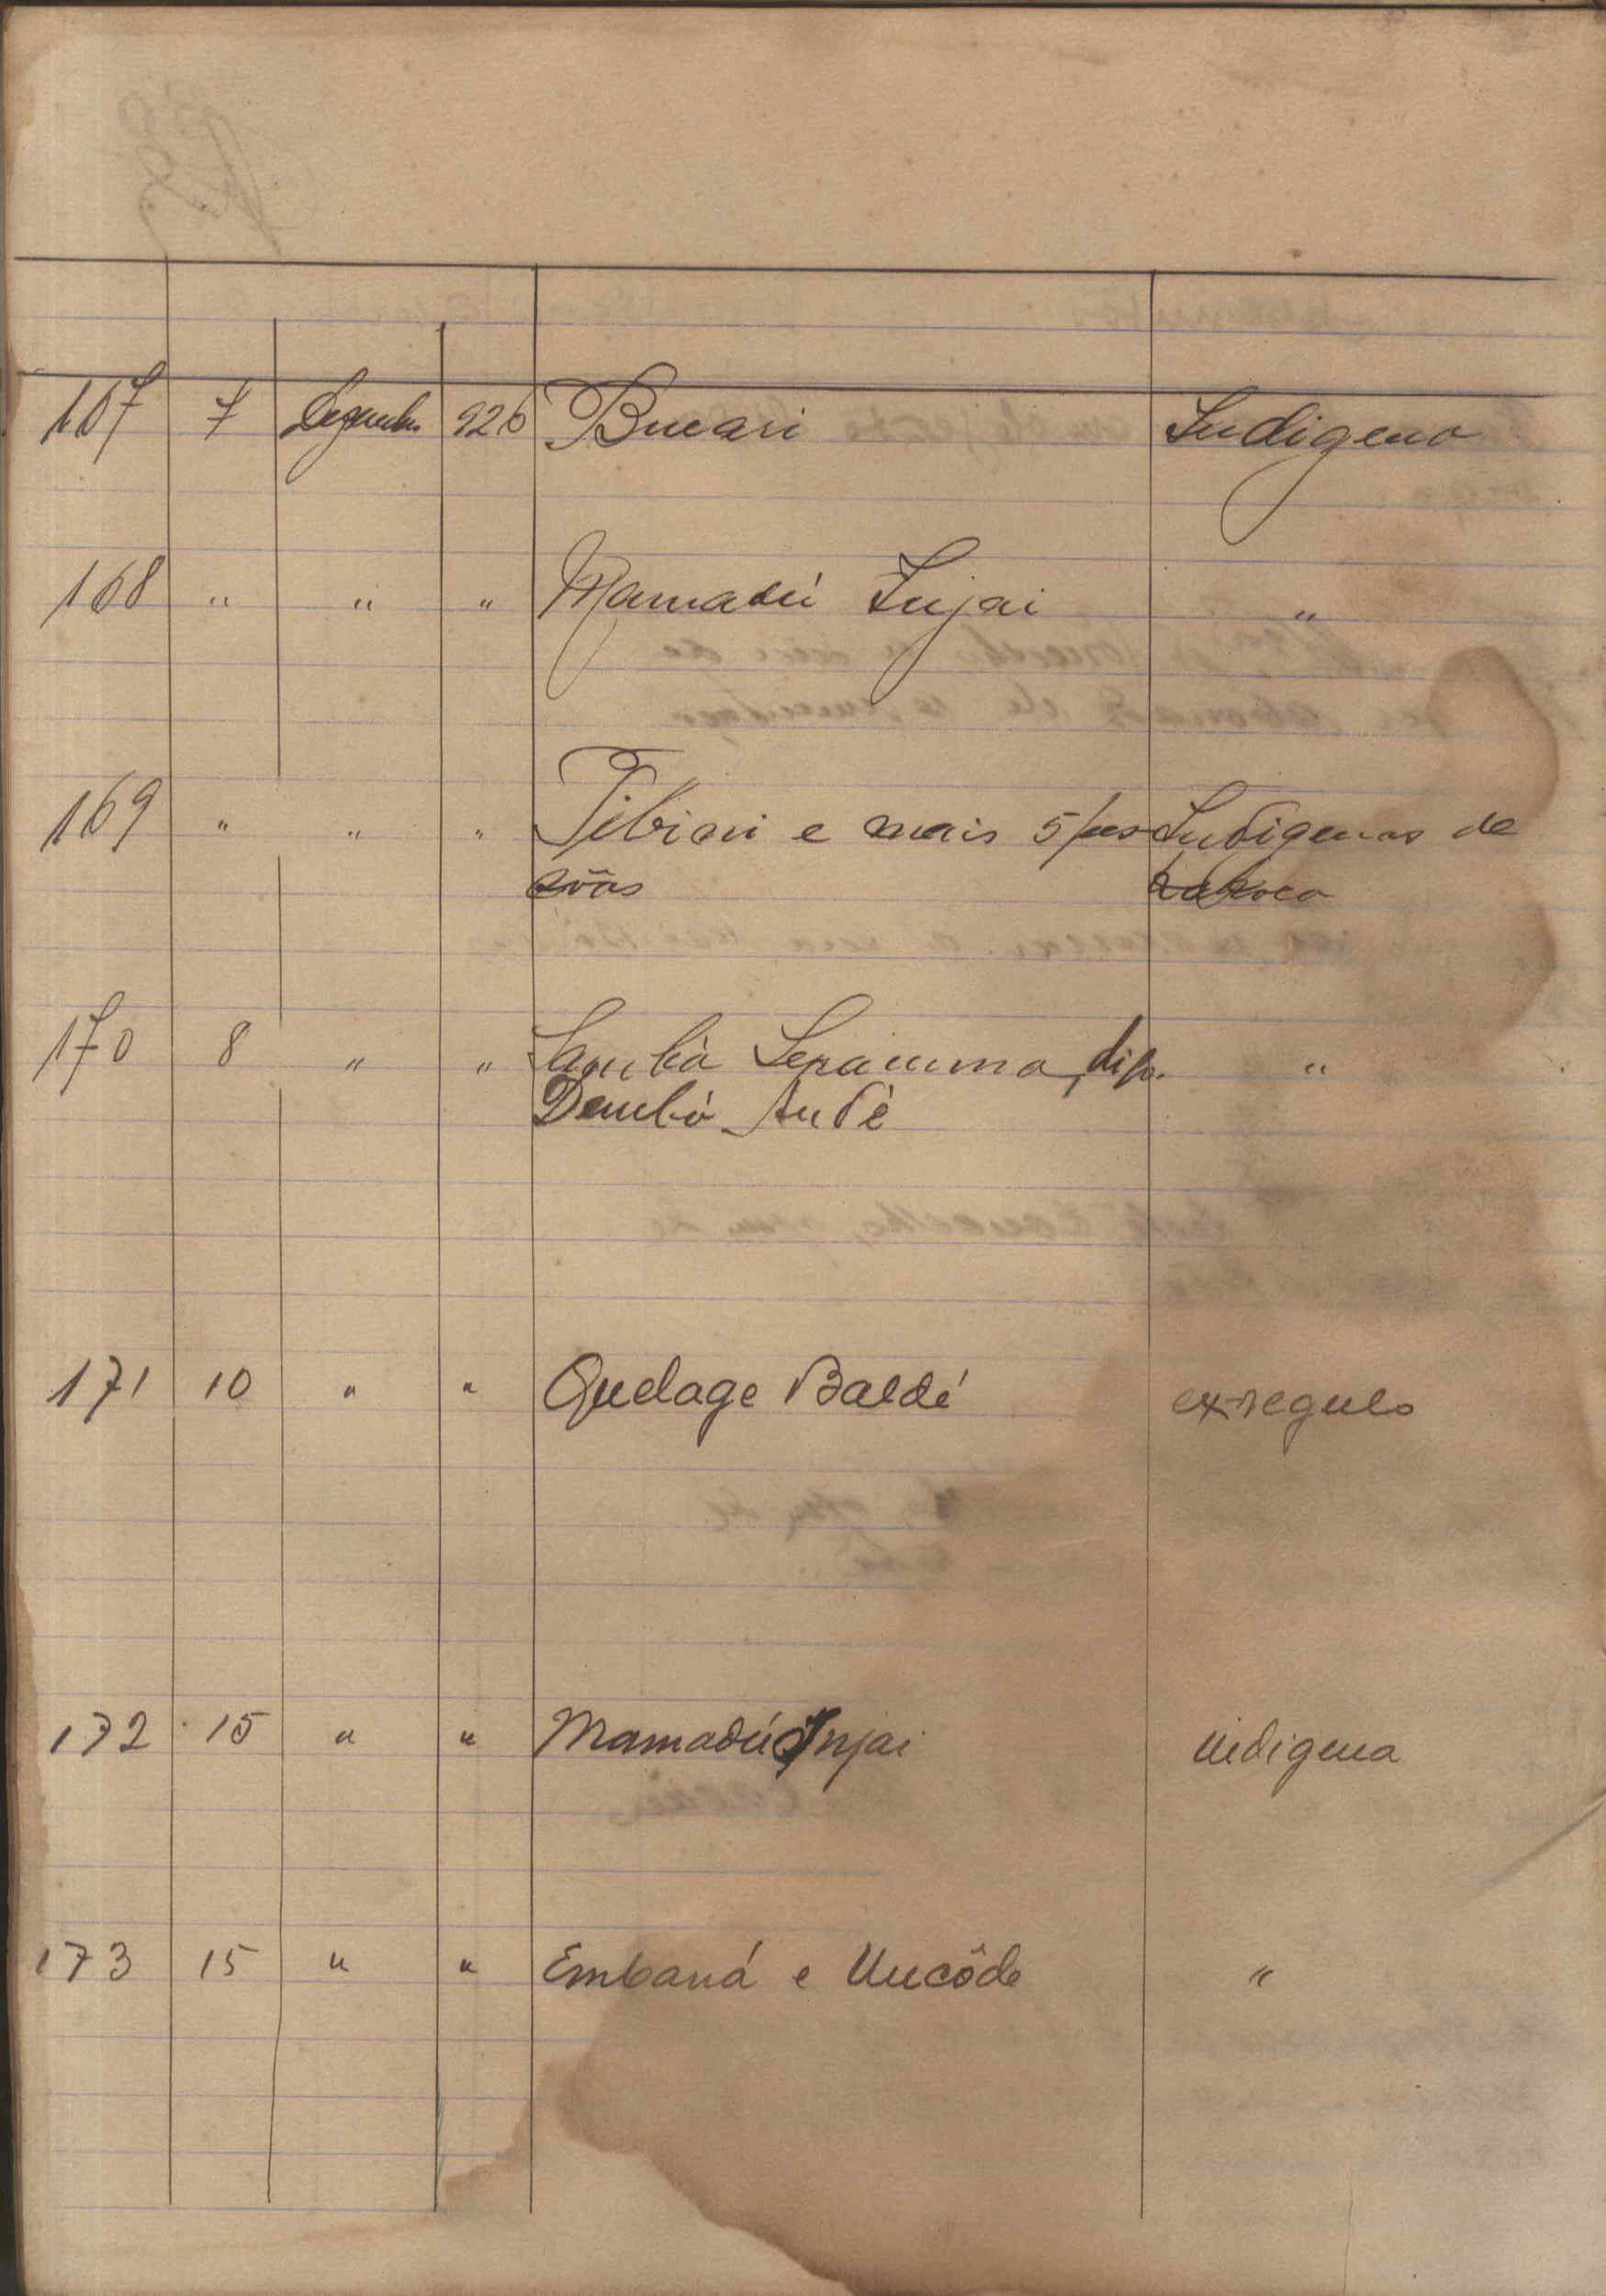 167 7 Dezembro 926 Bucari Indigena
168 " " " Mamadú Injai "
169 " " " Tibiri e mais 5 pes- Indigenas de
sôas
170 8 " " Sambá "
Dembó Audé
171 10 " " Quelage Baldé ex-regulo
172 15 " " Mamadú Injai indigena
173 15 " " Embaná e Uncôde "